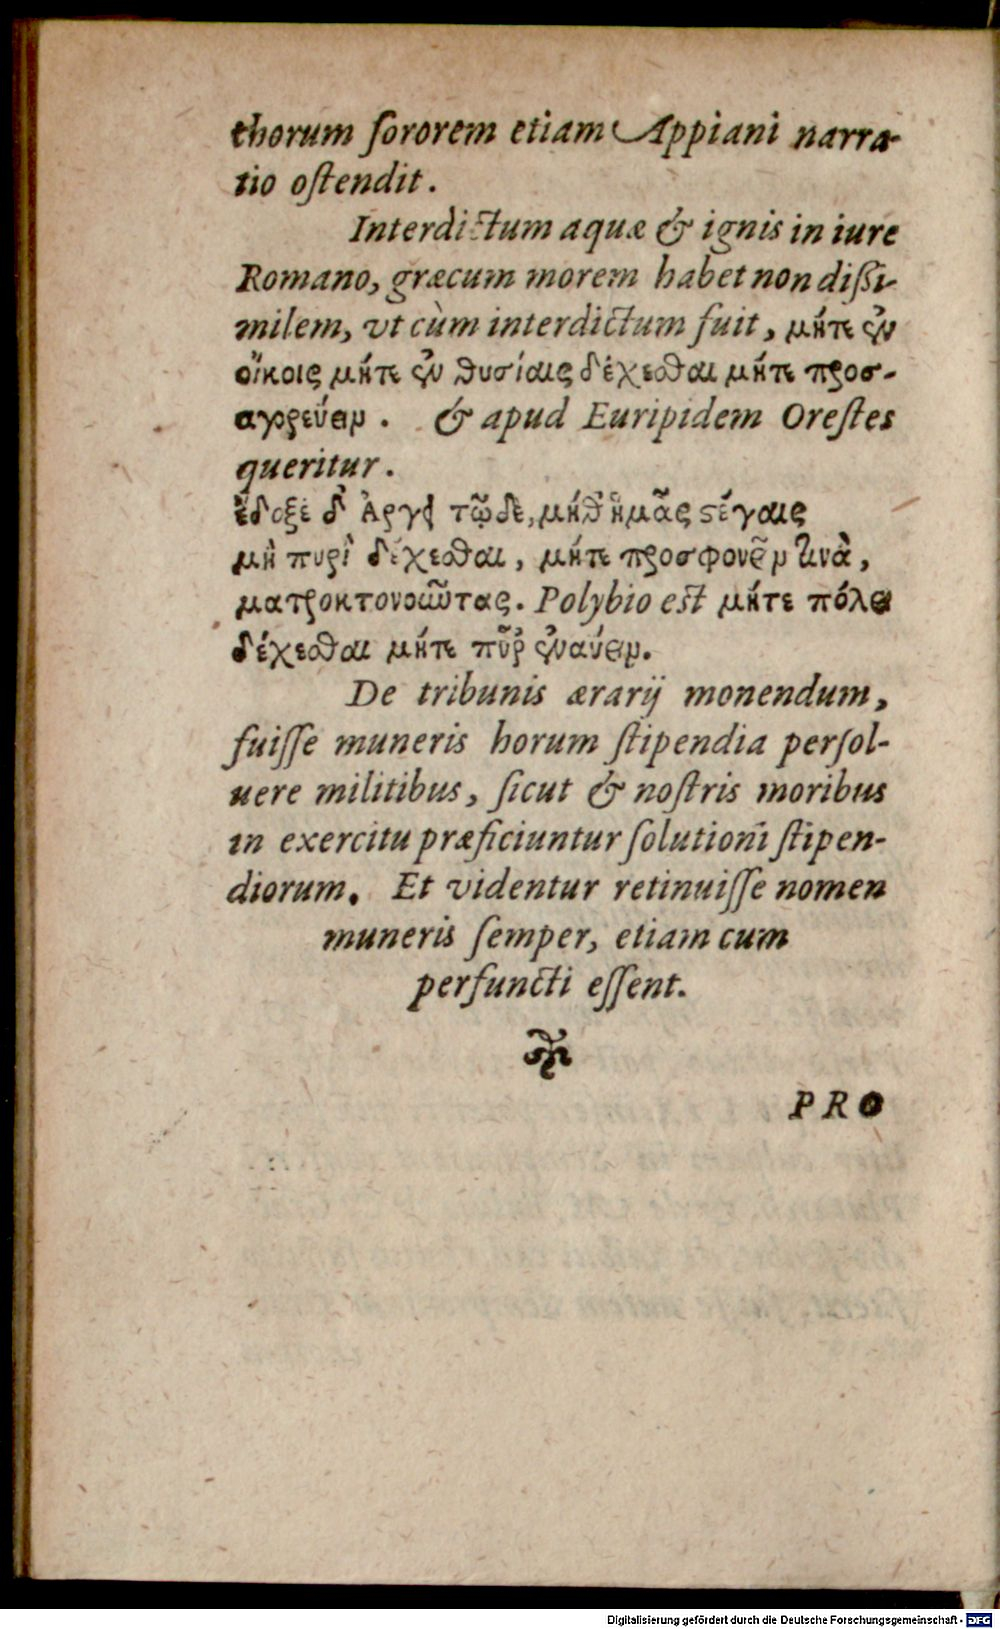 chorum ſororem etiam Appiani narra-
tio oſtendit.
Interdictum aquæ & ignis in iure
Romano, græcum morem habet non diſſi-
milem, vt cùm interdictum fuit, μήτε ἐν
οἴκοις μήτε ἐν θυσίαις δέχεσθαι μήτε προσ-
αγορεύειν. & apud Euripidem Oreſtes
queritur.
ἔδοξε δ' Ἀργει τῷδε, μήθ' ἡμᾶς στέγαις
μὴ πυρὶ δέχεσθαι, μήτε προσφονεῖν τινὰ,
ματροκτονοῶντας. Polybio eſt μήτε πόλει
δέχεσθαι μήτε πῦρ ἐναύειν.
De tribunis ærarij monendum,
fuiſſe muneris horum ſtipendia perſol-
uere militibus, ſicut & noſtris moribus
in exercitu præficiuntur ſolutioni ſtipen-
diorum. Et videntur retinuiſſe nomen
muneris ſemper, etiam cum
perfuncti eſſent.
PRO
Digitalisierung gefördert durch die Deutsche Forschungsgemeinschaft - DFG